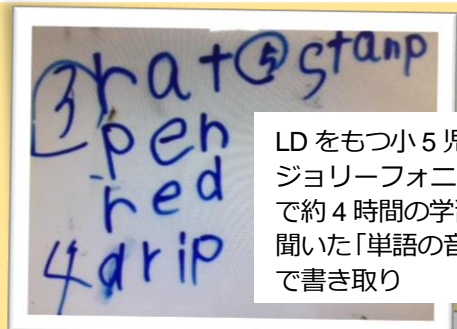 ③ rat ⑤ stanp
pen
red
4 drip
LD をもつ小 5 児
ジョリーフォニ
で約 4 時間の学習
聞いた「単語の音
で書き取り